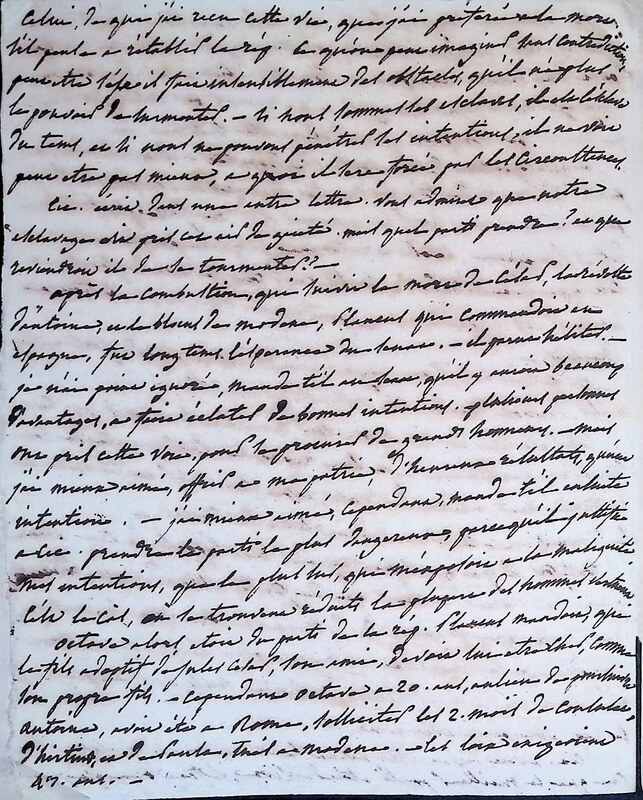 Celui, de qui j'ai reçu cette vie, que j'ai préférée à la mort,
s'il pense à rétablir la rép. Ce qu'on peut imaginer sans contradiction
peut être César il fait insensiblement des obstacles, qu'il n'a plus
le pouvoir de surmonter. - si nous sommes ses esclaves, il est l'esclave
du tems, et si nous ne pouvons pénétrer ses intentions, il ne voit
peut etre pas mieux, à quoi il sera forcé par les circonstances.
Cic. écrit dans une autre lettre. vous admirez que notre
esclavage ait pris cet air de gaieté. mais quel parti prendre? et que
reviendroit il de se tourmenter? -
après la combustion, qui suivit la mort de César, la révolte
d'antoine, et le blocus de modene, Plancus qui commandoit en
espagne, fut longtems l'espérance du sénat. - il parut hésiter. -
je n'ai point ignoré, manda t'il au sénat, qu'il y avoit beaucoup
d'avantages, à faire éclater de bonnes intentions. plusieurs personnes
ont pris cette voie, pour se procurer de grands honneurs. - mais
j'ai mieux aimé, offrir à ma patrie, d'heureux résultats, qu'une
intention. - j'ai mieux aimé, cependant, manda t'il ensuite
à Cic. prendre le parti le plus dangereux, parce qu'il justifie
mes intentions, que le plus sûr, qui m'exposoit à la malignité
C'est le cas, où se trouvent réduits la plupart des hommes
octave alors, etoit du parti de la rép. Plancus mandoit, que
le fils adoptif de Jules César, son ami, devoit lui etre cher, comme
son propre fils. - cependant octave à 20. ans, au lieu de poursuivre
antoine, avoit été à Rome, solliciter les 2. mois de consulat,
d'hirtius, et de Pansa, tués à modene. - les loix exigeoient
43. ans. -